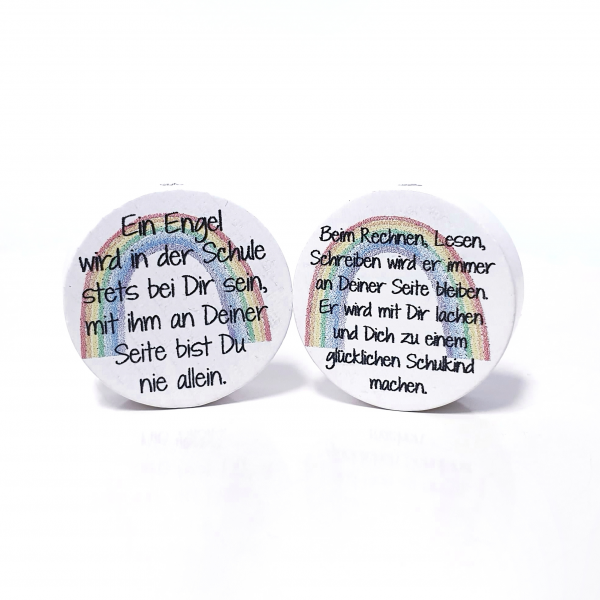 Ein Engel
wird in der Schule
stets bei Dir sein,
mit ihm an Deiner
Seite bist Du
nie allein.
Beim Rechnen, Lesen,
Schreiben wird er immer
an Deiner Seite bleiben.
Er wird mit Dir lachen
und Dich zu einem
glücklichen Schulkind
machen.